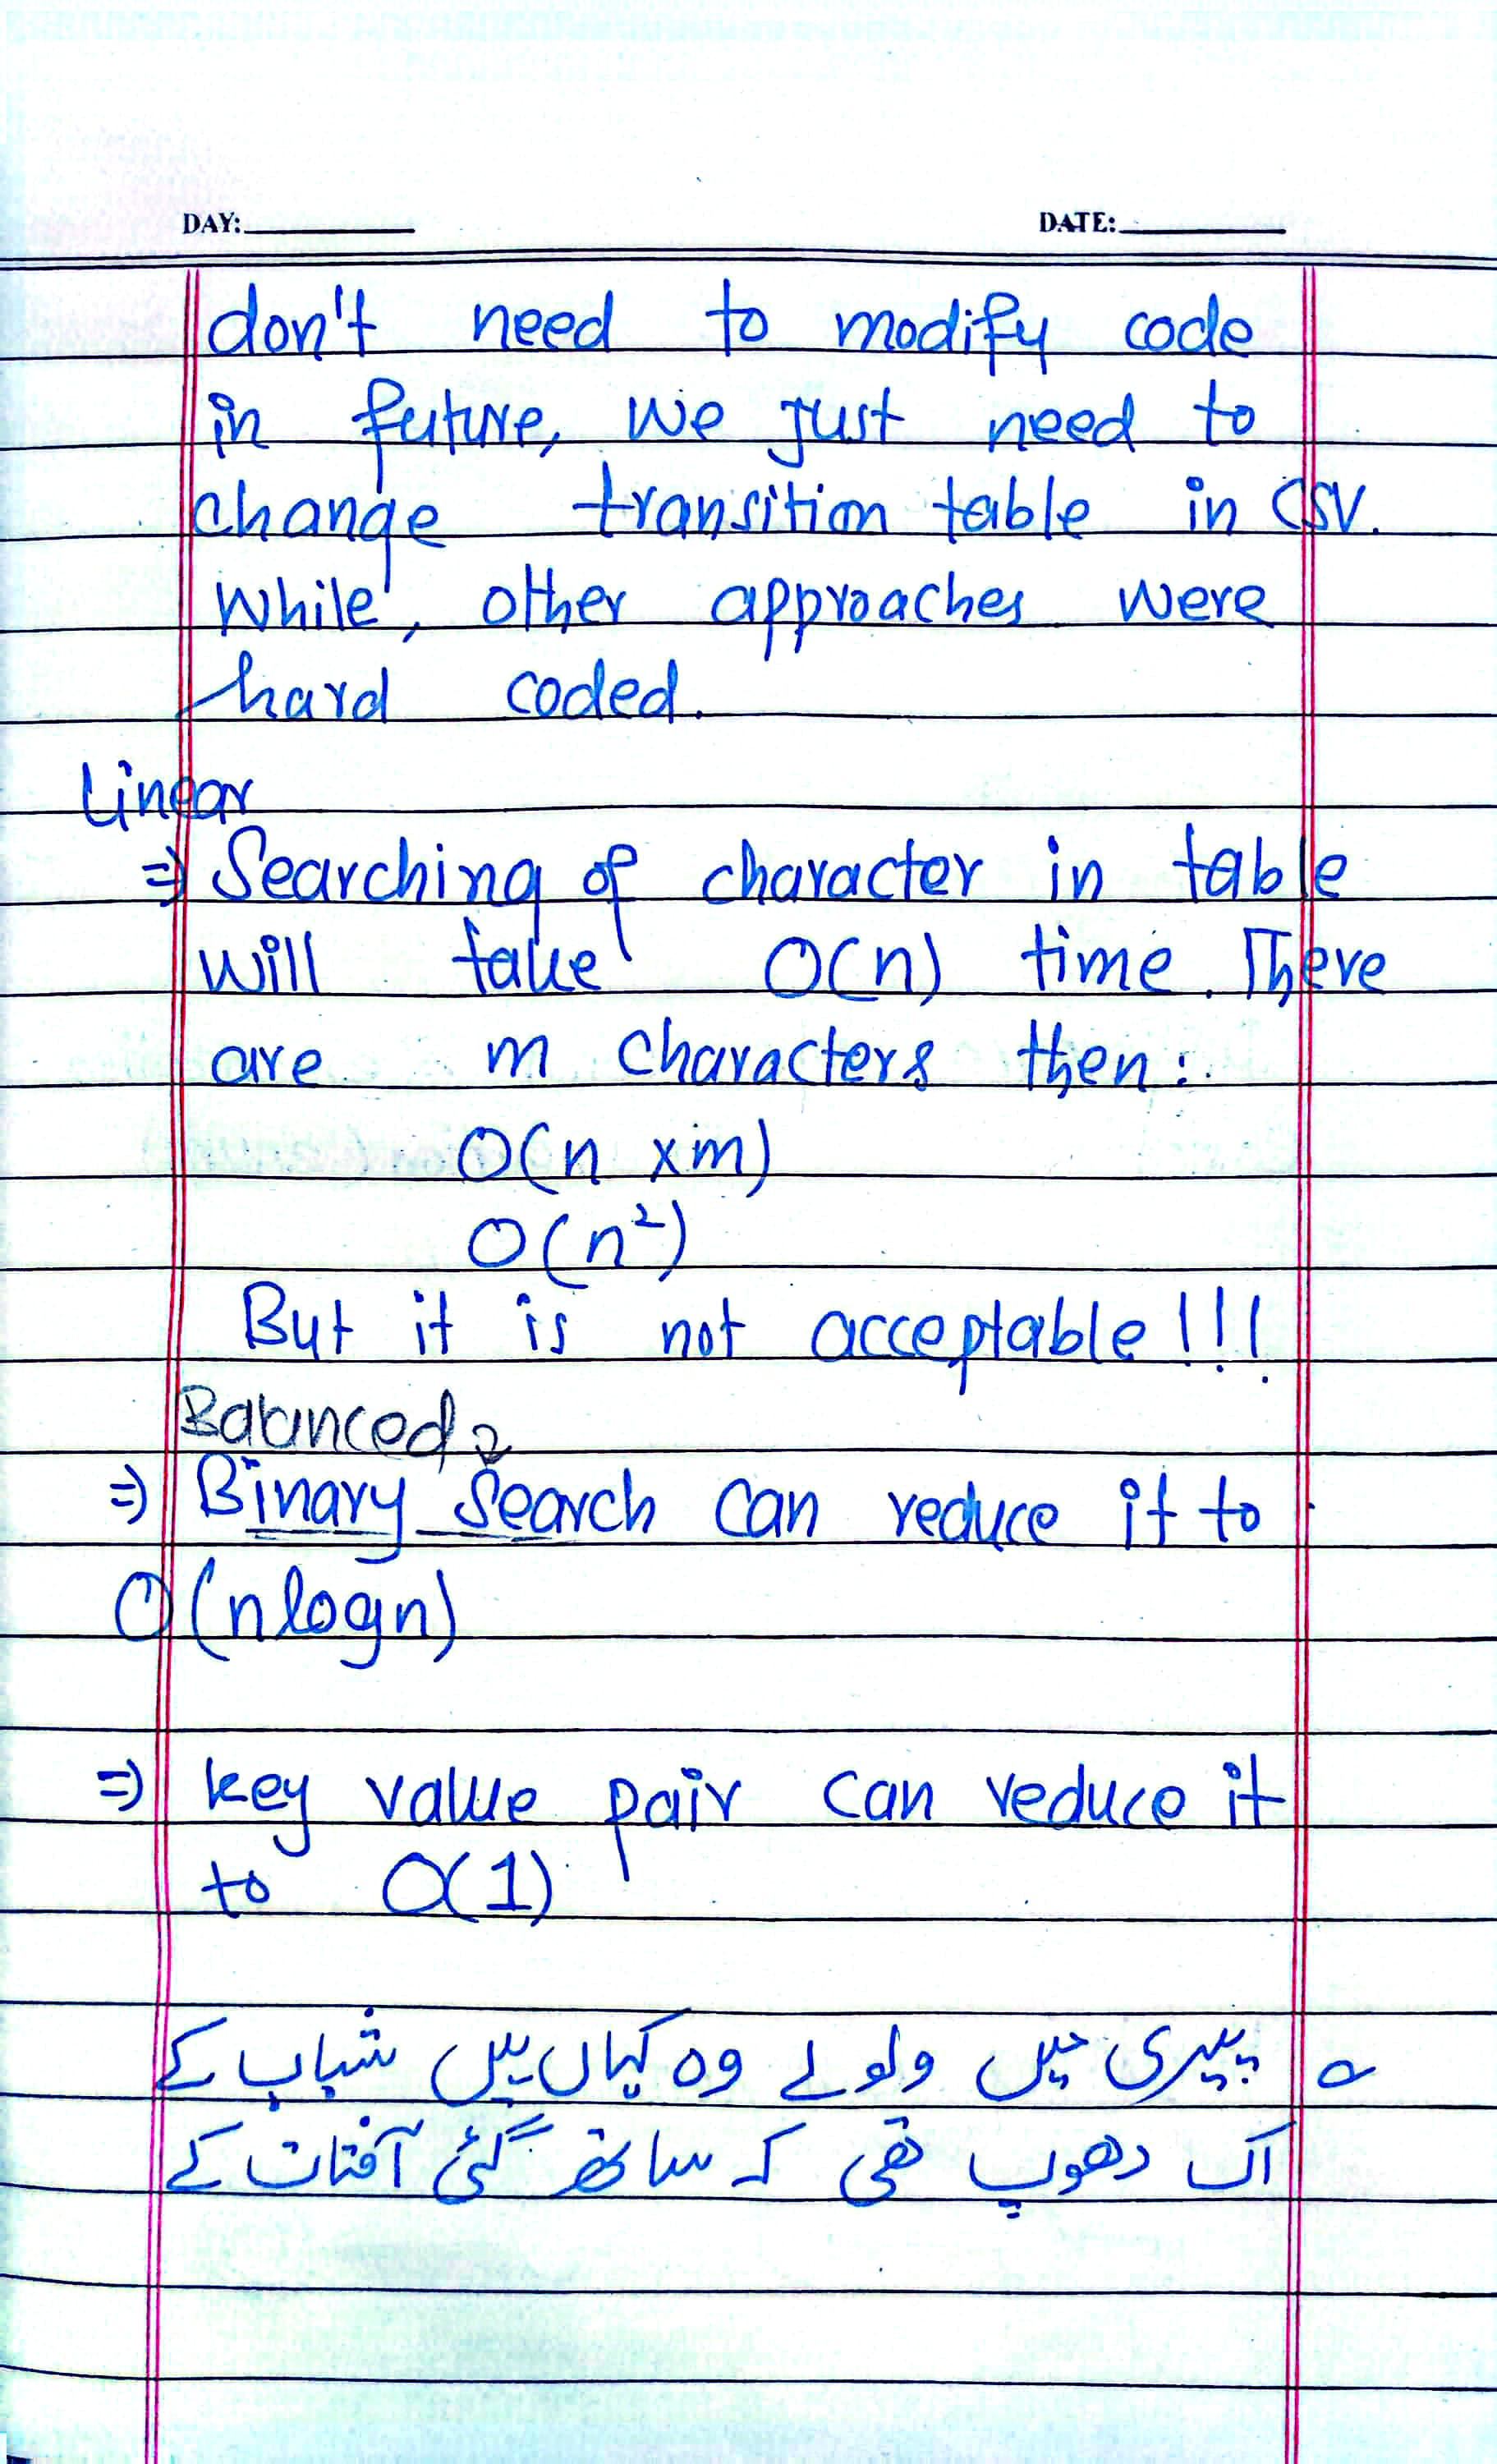 DAY: DATE:
don't need to modify code
in future, we just need to
change transition table in CSV.
While, other approaches were
hard coded.
Linear
=> Searching of character in table
will take O(n) time. There
are m characters then:
O(n xm)
O(n²)
But it is not acceptable!!!
Balanced
=> Binary Search can reduce it to
O(nlogn)
=> key value pair can reduce it
to O(1)
؎ پیری میں ولولے وہ کہاں ہیں شباب کے
اک دھوپ تھی کہ ساتھ گئی آفتاب کے